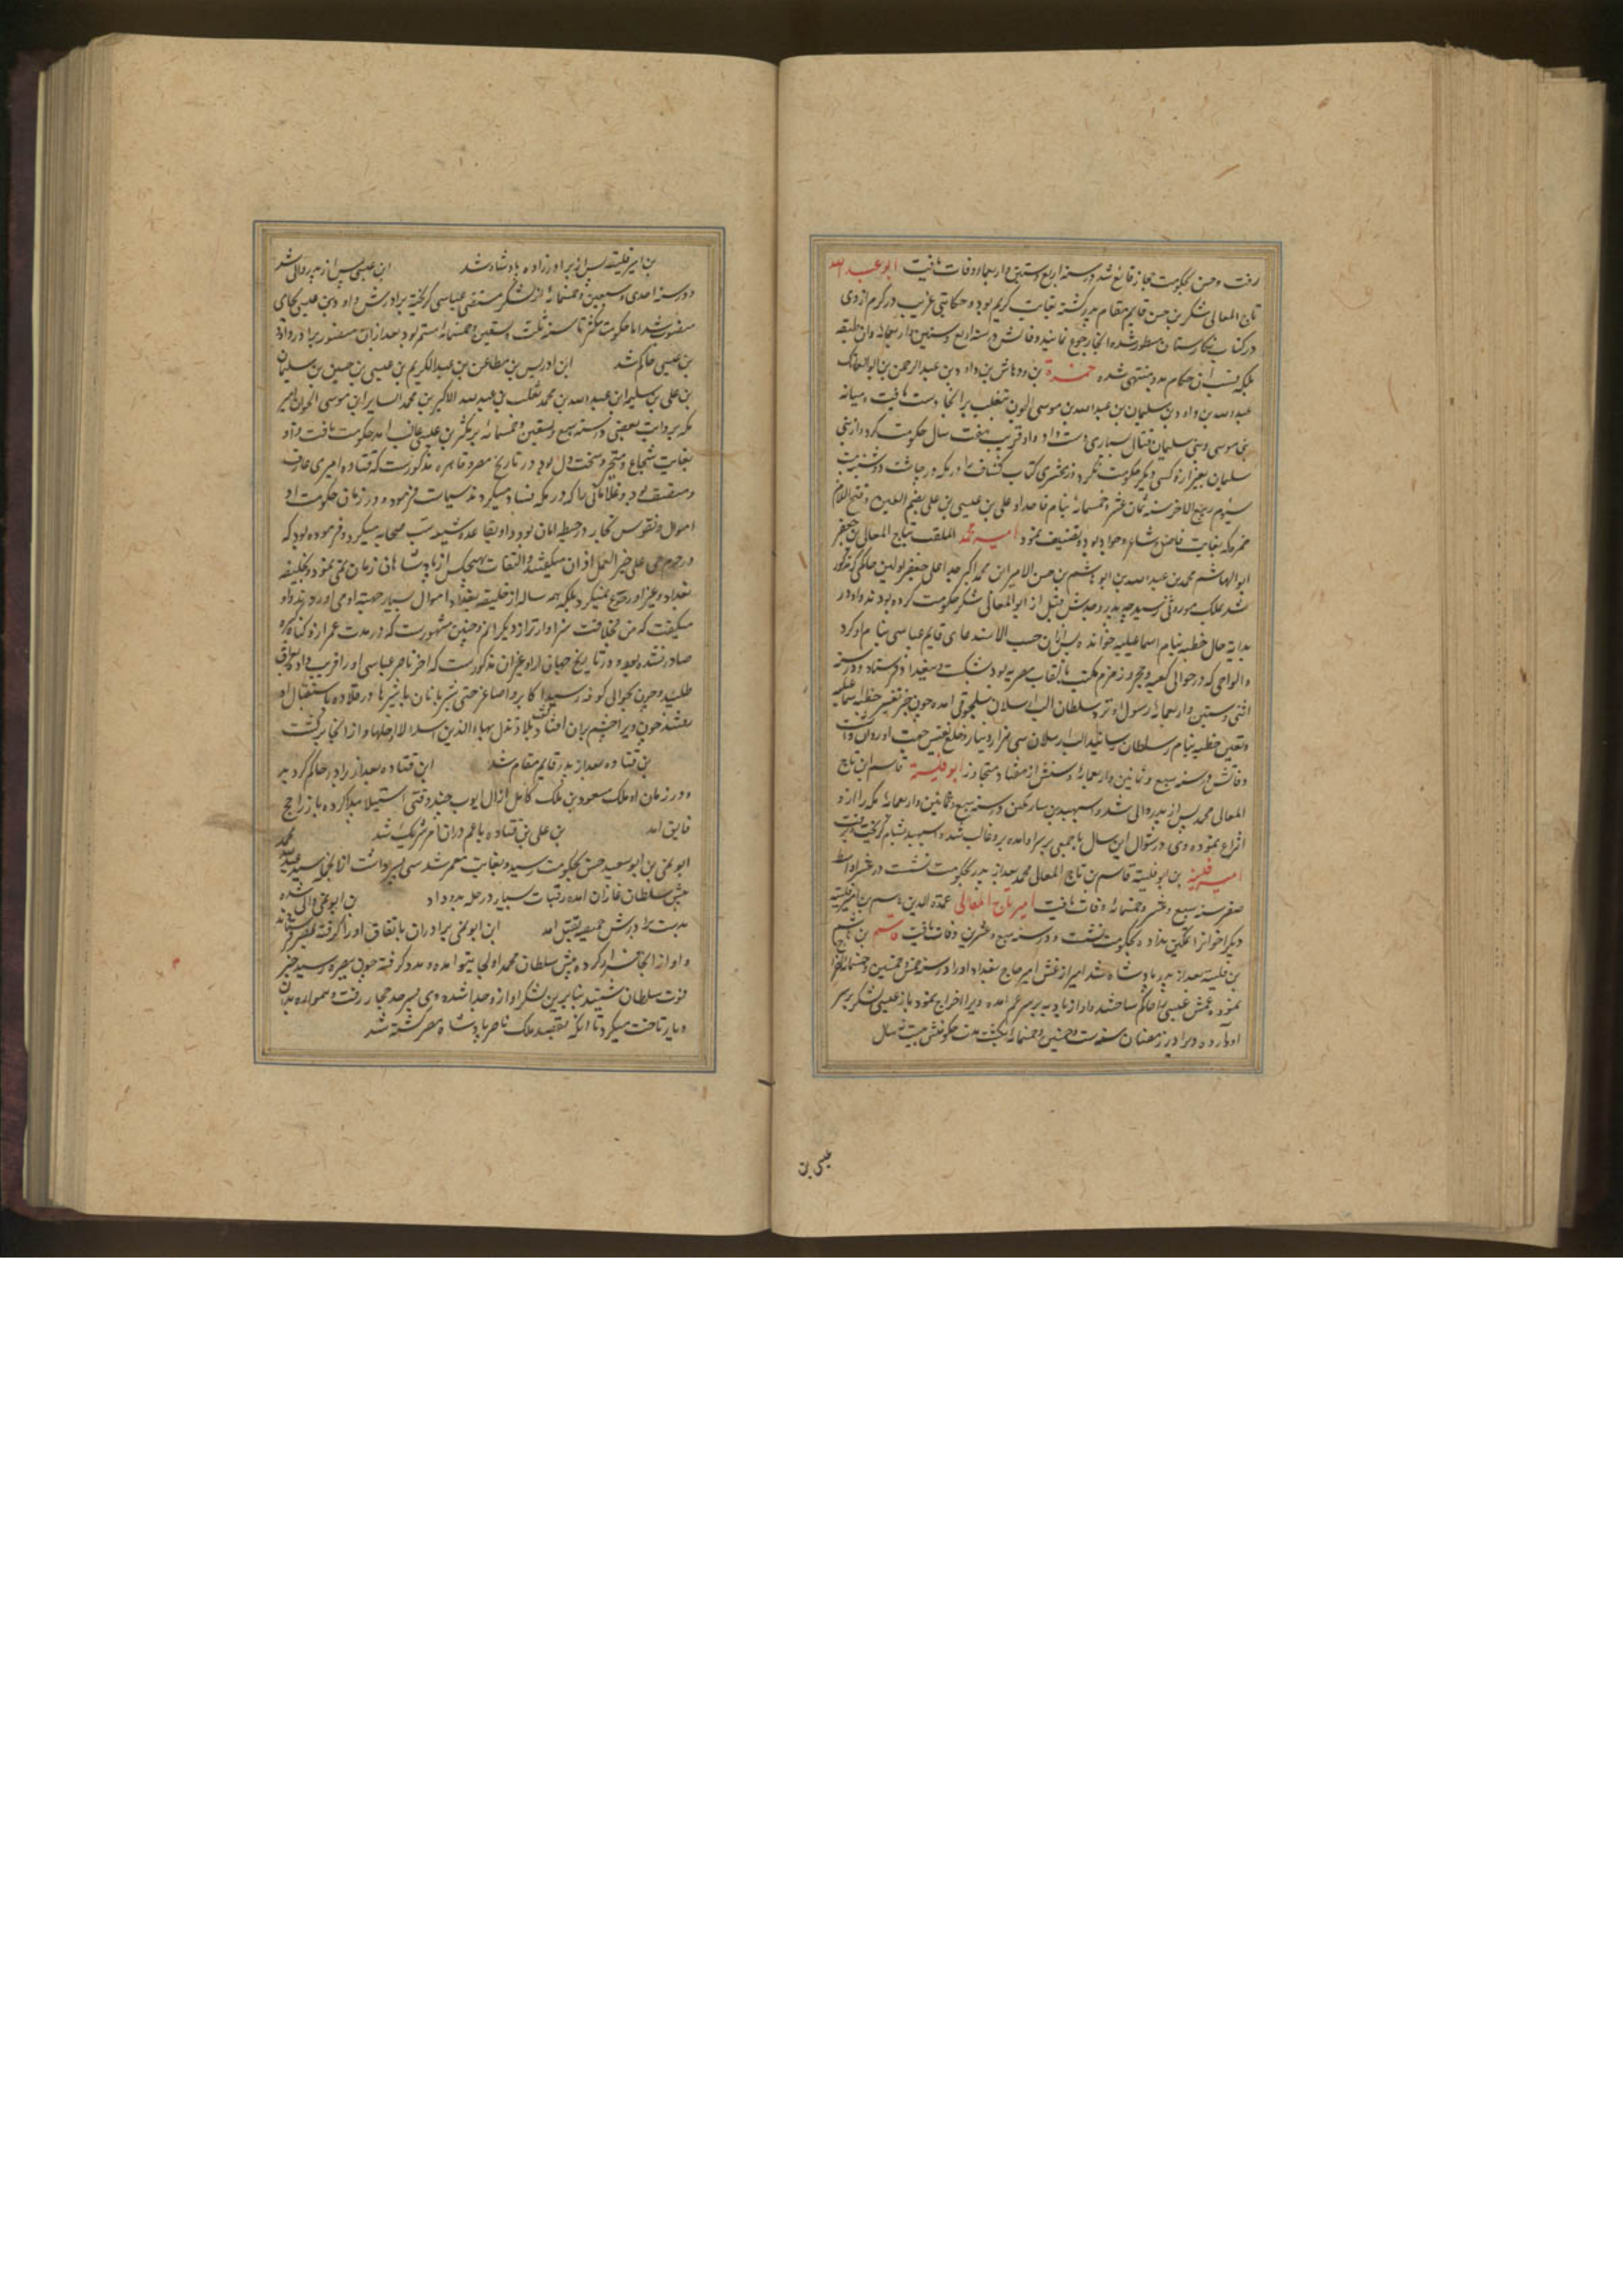 رفت و حسن بحکومت حجاز قانع شد در سنه اربع و ستین و اربعمائه وفات یافت ابو عبد الله
تاج المعالی شکر بن حسن قایم مقام پدر گشته بغایت کریم بود و حکایتی غریب در کرم از وی
در کتاب نگارستان مسطور شده انجا رجوع نمایند وفاتش در سنه اربع و ستین و اربعمائه و ان طبقه
بلکه نسب ان حکام بدو منتهی شده حمزة بن وهاس بن داود بن عبد الرحمن بن ابو الفاتک
عبد الله بن داود بن سلیمان بن عبد الله بن موسی الجون بتغلب بر انجا دست یافت و میانه
بنی موسی و بنی سلیمان قتال بسیاری دست داد و او قریب هفت سال حکومت کرد و از بنی
سلیمان بغیر از و کسی دیگر حکومت نکرد و زمخشری کتاب کشاف را در مکه در چاشت دوشنبه بیست
سیوم ربیع الاخر سنه ثمان عشر و خمسمائه بنام علی بن عیسی بن علی بضم العین و فتح اللام
بن حمزه که بغایت فاضل و شاعر و جواد بود تصنیف نمود امیر محمد الملقب بتاج المعالی بن جعفر
ابو الهاشم محمد بن عبد الله بن ابو هاشم بن حسن الامیر ابن محمد اکبر جد اعلی جعفر اولین حاکمی که مذکور
شد بملک موروثی رسید چه پدر و جدش قبل از ابو المعالی شکر حکومت کرده بودند و او در
بدایة حال خطبه بنام اسماعیلیه خوانده پس از ان حسب الاستدعای قایم عباسی بنام او کرد
و الواحی که در حوالی کعبه و حجر و زمزم مکتب بالقاب مصریه بود بشکست و ببغداد فرستاد و در سنه
اثنی و ستین و اربعمائه رسول او نزد سلطان الب ارسلان سلجوقی امده چون خبر تغییر خطبه اسماعیلیه
و تعیین خطبه بنام سلطان رسانید الب ارسلان سی هزار دینار و خلع نفیس جهت او روان داشت
وفاتش در سنه سبع و ثمانین و اربعمائه و سنش از هفتاد متجاوز ابو فلیته قاسم ابن تاج
المعالی محمد پس از پدر والی شد و اسپهبد بن سارتکین در سنه سبع و ثمانین و اربعمائه مکه را از و
انتزاع نموده وی در شوال این سال با جمعی بر سر او امده برو غالب شده و اسپهبد بشام گریخته
امیر فلیته بن ابو فلیته قاسم بن تاج المعالی محمد بعد از پدر بحکومت نشست در عشر اواسط
صفر سنه سبع و عشر و خمسمائه وفات یافت امیر تاج المعالی عمدة الدین هاشم بن امیر فلیته
دیگر اخوان را تمکین نداده بحکومت نشست و در سنه سبع و عشرین وفات یافت قاسم بن هاشم
بن فلیته بعد از پدر بادشاه شد امیر ارغش امیر حاج بغداد او را در سنه خمس و خمسین و خمسمائه اخراج
نموده عمش عیسی را حاکم ساختند و او از بادیه بر سر عم امده ویرا اخراج نمود باز عیسی لشکر بر سر
او آورده ویرا در رمضان سنه ست و خمسین و خمسمائه بکشت مدت حکومتش بیست سال
عیسی بن
بن امیر فلیته پس از برادرزاده بادشاه شد ابن عیسی پس از پدر والی شد
و در سنه احدی و سبعین و خمسمائه از لشکر مستضی عباسی گریخته برادرش داود بن عیسی بجای
منصوب شد اما حکومت مکثر تا سنه ثلث و تسعین و خمسمائه مستمر بود بعد از ان منصور برادر داود
بن عیسی حاکم شد ابن ادریس بن مطاعن بن عبد الکریم بن عیسی بن حسین بن سلیمان
بن علی بن سلیم ابن عبد الله بن محمد ثعلب بن عبد الله الاکبر بن محمد السایر ابن موسی الجون امیر
مکه بروایت بعضی در سنه سبع و تسعین و خمسمائه بر مکثر بن عیسی غالب امد حکومت یافت و او
بغایت شجاع و متجبر و سخت دل بود در تاریخ مصر و قاهره مذکورست که قتاده امیری عارف
و منصف بود و غلامانی را که در مکه فساد میکردند سیاست فرمود و در زمان حکومت او
اموال و نفوس تجار در حیطه امان بود و او بقاعده شیعه سب صحابه میکرد و فرموده بود که
در حرم حی علی خیر العمل اذان میگفتند و التفات بهیچکس از بادشاهان زمان نمی نمود و بخلیفه
بغداد و غیر او رجوع نمیکرد بلکه همه ساله از خلیفه بغداد اموال بسیار جهت او می اوردند و او
میگفت که من بخلافت سزاوارتر از دیگرانم و چنین مشهورست که در مدت عمر ازو گناه کبیره
صادر نشده بود و در تاریخ جهان ارا و غیر ان مذکورست که اخر ناصر عباسی او را فریب داده بعراق
طلبید و چون بحوالی کوفه رسید اکابر و اصاغر حتی شیربانان با شیرها در قلاده باستقبال او
رفتند چون ویرا چشم بران افتاد گفت بلاد تذل بها الاسد لا ادخلها و از انجا برگشت
بن قتاده بعد از پدر قایم مقام شد ابن قتاده بعد از برادر حاکم گردید
و در زمان او ملک مسعود بن ملک کامل از ال ایوب چند وقتی استیلا پیدا کرده باز راجح
فایق امد بن علی بن قتاده با عم در ان امر شریک شد محمد
ابو نمی بن ابو سعید حسن بحکومت رسید و بغایت معمر شد سی پسر داشت از انجمله سید عبد الله
پیش سلطان غازان امده رقبات بسیار در حله بدو داد بن ابو نمی والی شده
بدست برادرش حمیضه بقتل امد ابن ابو نمی برادران باتفاق او را گرفته بمصر فرستادند
و او از انجا فرار کرده پیش سلطان محمد اولجایتو امده و مدد گرفته چون ببصره رسید خبر
فوت سلطان شنید بنابرین لشکر او ازو جدا شده وی بسرحد حجاز رفت و همواره بدان
دیار تاخت میکرد تا انکه بقصد ملک ناصر بادشاه مصر کشته شد